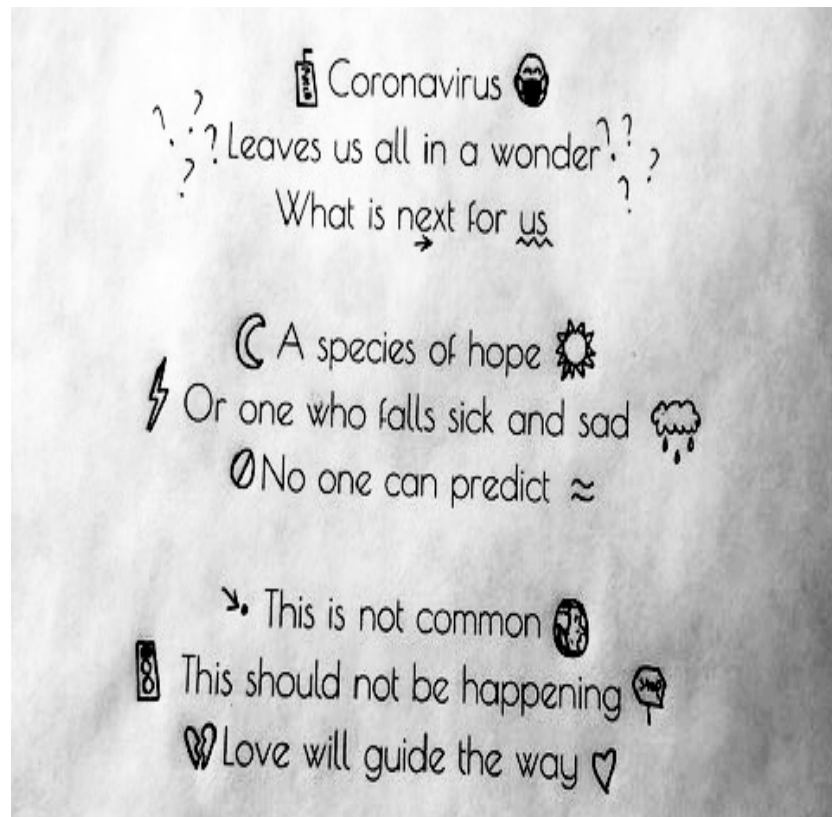 Coronavirus
Leaves us all in a wonder
What is next for us
A species of hope
Or one who falls sick and sad
No one can predict
This is not common
This should not be happening
Love will guide the way